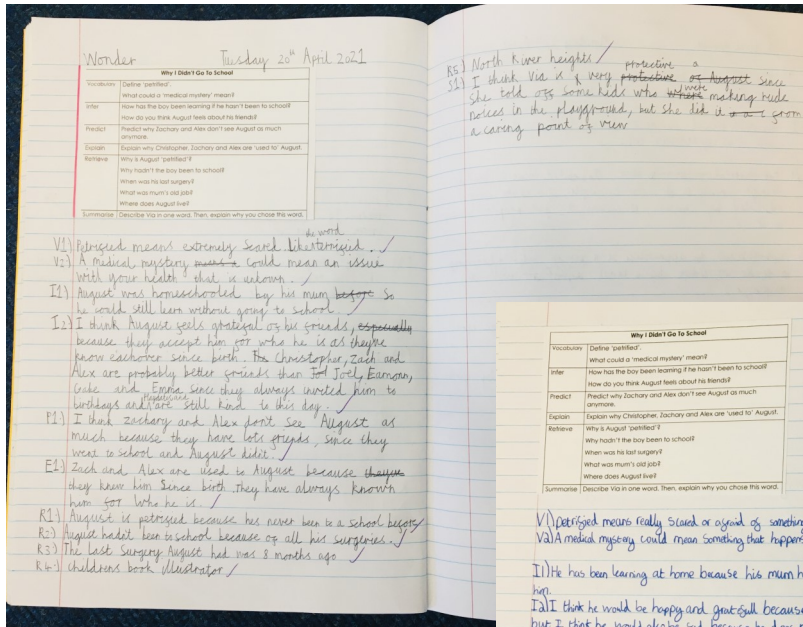 Wonder Tuesday 20th April 2021
Why I Didn't Go To School
Vocabulary Define 'petrified'.
What could a 'medical mystery' mean?
Infer How has the boy been learning if he hasn't been to school?
How do you think August feels about his friends?
Predict Predict why Zachary and Alex don't see August as much anymore.
Explain Explain why Christopher, Zachary and Alex are 'used to' August.
Retrieve Why is August 'petrified'?
Why hadn't the boy been to school?
When was his last surgery?
What was mum's old job?
Where does August live?
Summarise Describe Via in one word. Then, explain why you chose this word.
V1) Petrified means extremely scared like the word terrified.
V2) A medical mystery means a could mean an issue
with your health that is unkown.
I1) August was homeschooled by his mum before so
he could still learn without going to school.
I2) I think August feels grateful of his friends, especially
because they accept him for who he is as they've
know eachover since birth. Christopher, Zach and
Alex are probably better friends than Joel, Eamonn,
and Emma since they always invited him to
birthdays and are still kind to this day.
P1) I think zachary and Alex don't see August as
much because they have lots friends, since they
went to school and August didn't.
E1) Zach and Alex are used to August because
they knew him since birth. They have always known
him for who he is.
R1) August is petrified because he's never been to a school before
R2) August hadn't been to school because of all his surgeries.
R3) The last surgery August had was 8 months ago
R4) childrens book illustrator
R5) North River heights
S1) I think Via is a very protective of August since
she told off some kids who were making rude
noices in the playground, but she did it from
a caring point of view
Why I Didn't Go To School
Vocabulary Define 'petrified'.
What could a 'medical mystery' mean?
Infer How has the boy been learning if he hasn't been to school?
How do you think August feels about his friends?
Predict Predict why Zachary and Alex don't see August as much anymore.
Explain Explain why Christopher, Zachary and Alex are 'used to' August.
Retrieve Why is August 'petrified'?
Why hadn't the boy been to school?
When was his last surgery?
What was mum's old job?
Where does August live?
Summarise Describe Via in one word. Then, explain why you chose this word.
V1) petrified means really scared or afraid of something
V2) A medical mystery could mean something that happens
I1) He has been learning at home because his mum h
him.
I2) I think he would be happy and gratefull because
but I think he would